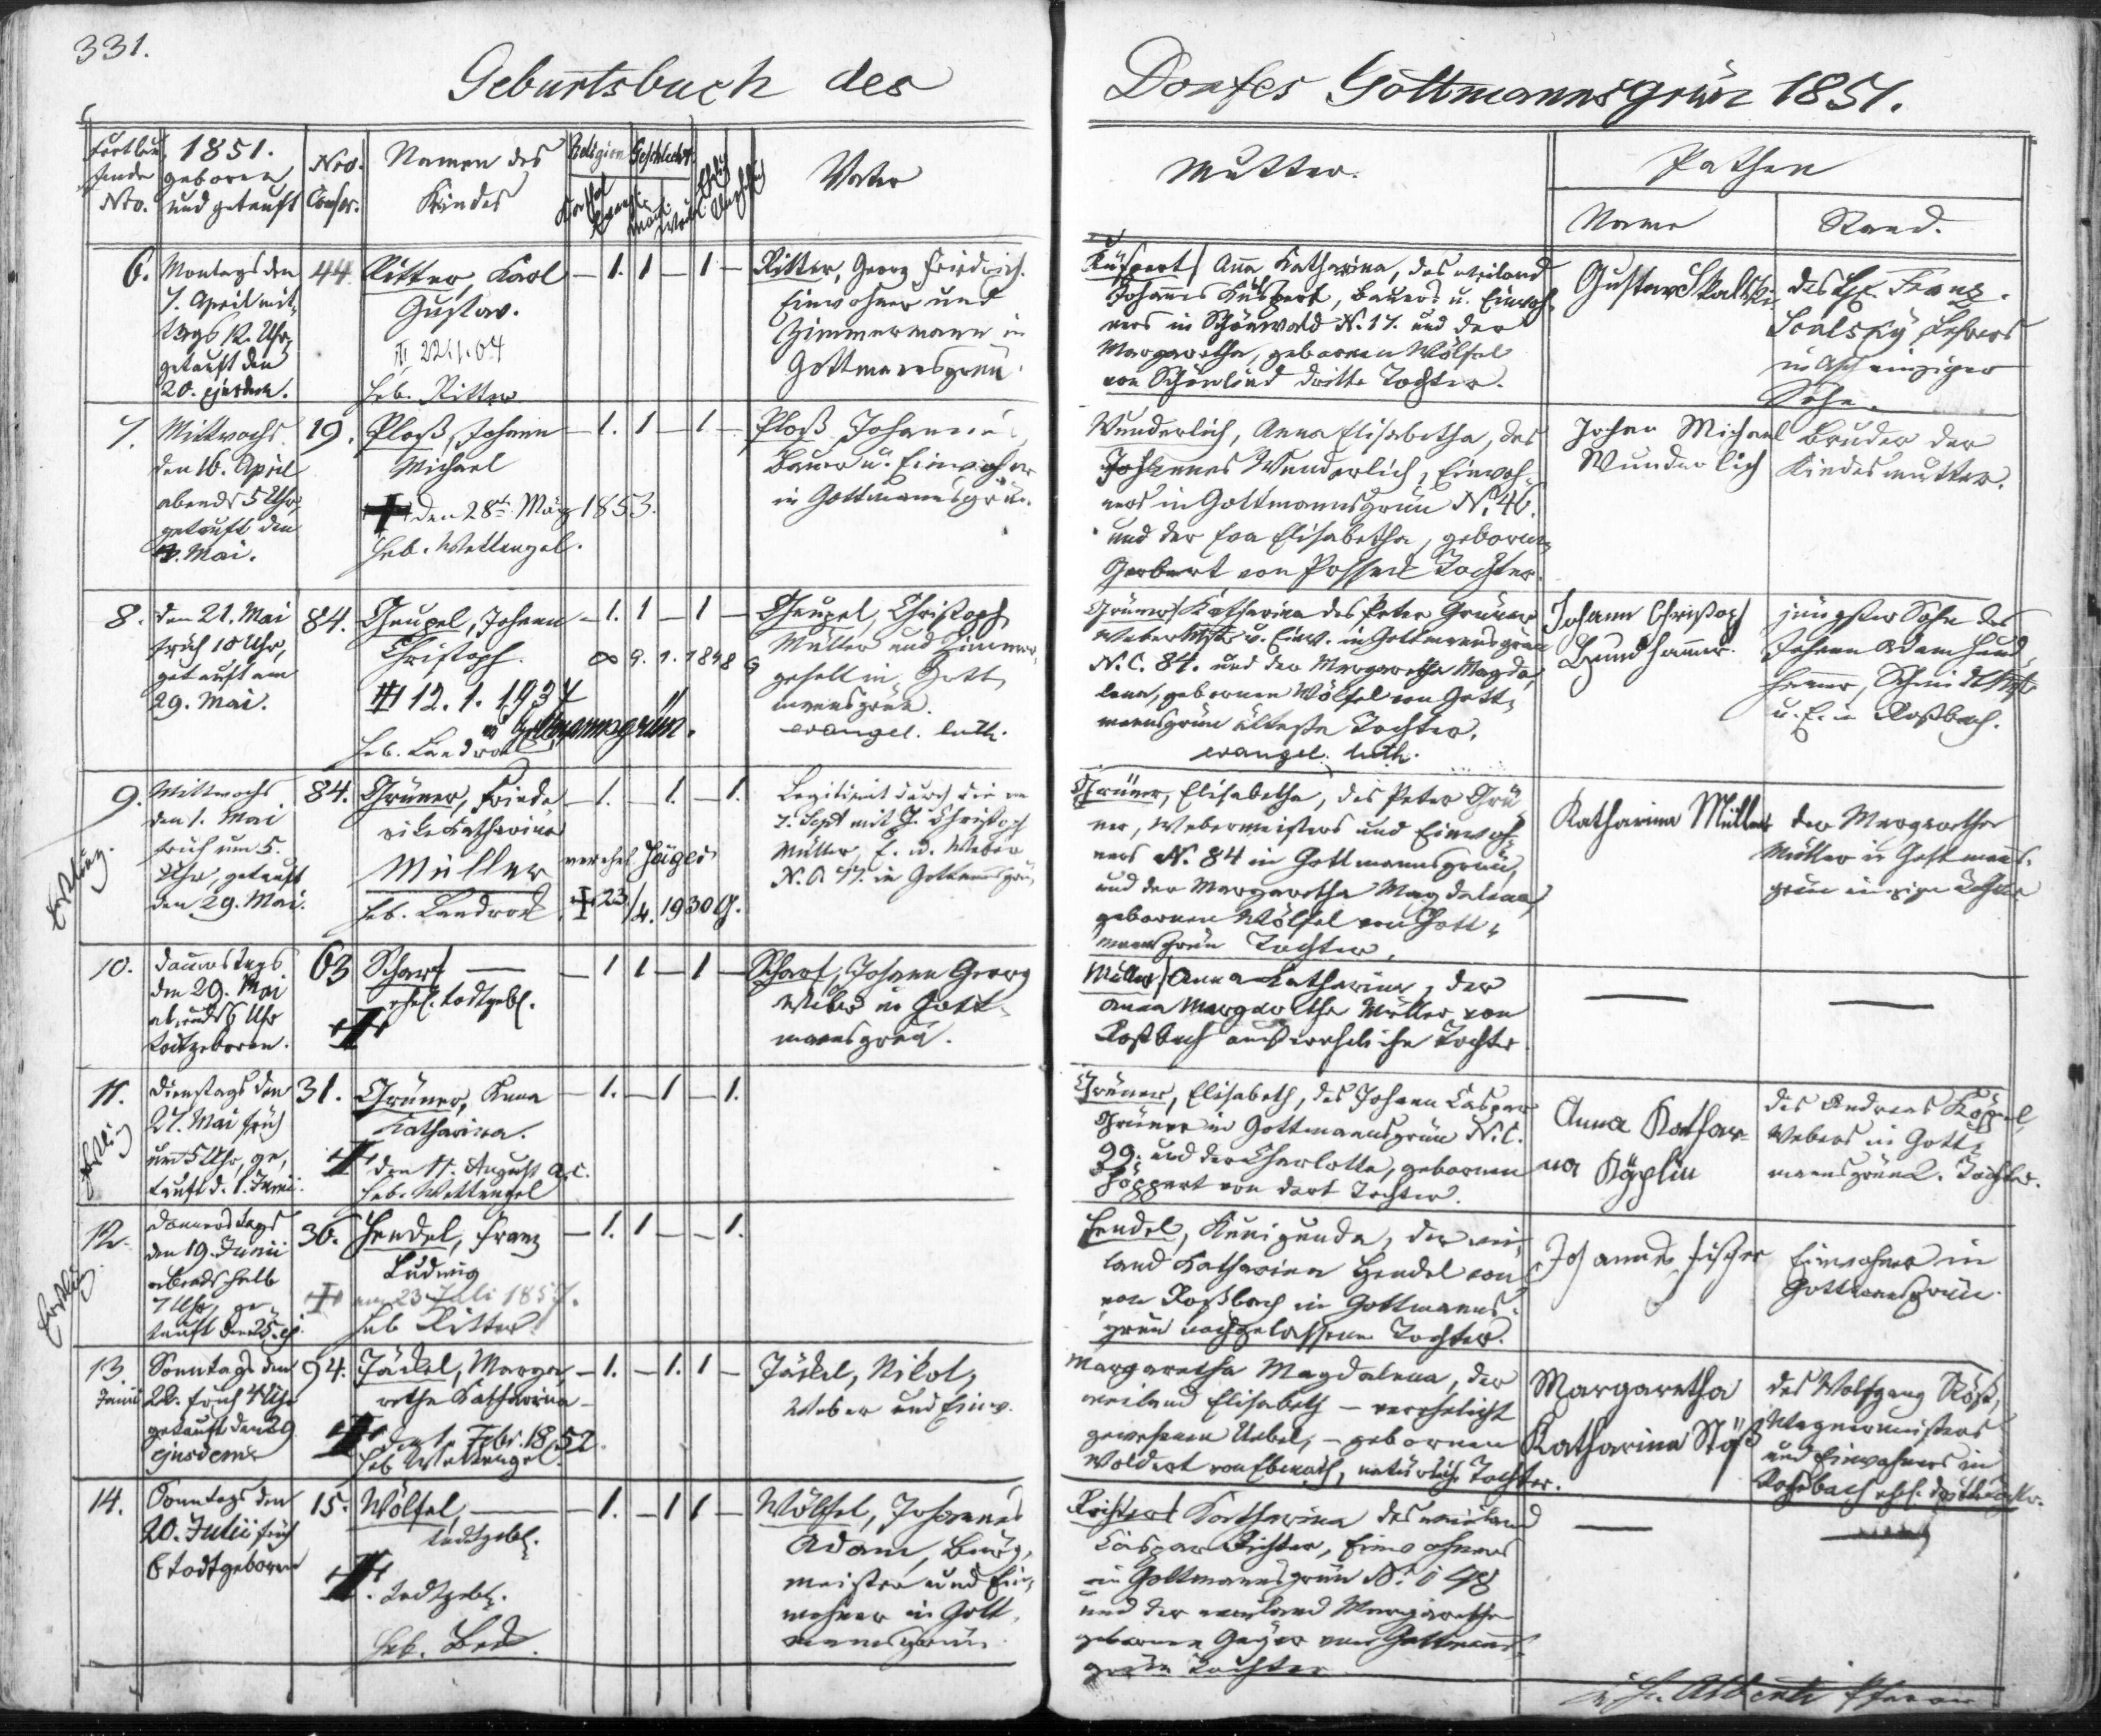 331.
Geburtsbuch des Dorfes Gottmannsgrün 1851.
Fortlau
fende
Nro.
1851.
geboren
und getauft
Nro.
Conscr.
Namen des
Kindes
Religion
Geschlecht
Vater
Mutter.
Pathen
Name
Stand.
6.
Montags den
7. April mit-
tags 12. Uhr,
getauft den
20. ejusdem.
44
Ritter, Karl
Gustav.
22.1.04
Heb. Ritter
— 1. 1 — 1 —
Ritter, Georg Friedrich.
Einwohner und
Zimmermann in
Gottmannsgrün.
Küspert, Anna Katharina, des weiland
Johannes Küspert, Bauers u. Einwoh-
ners in Schönwald N. 17. und der
Margaretha, gebornen Wölfel
von Schönlind dritte Tochter.
Gustav Skalsky
des H. Franz
Scalsky Lehrers
in Asch einziger
Sohn.
7.
Mittwochs
den 16. April
abends 5 Uhr,
getauft den
Mai.
19.
Ploß, Johann
Michael
den 28t. März 1853.
Heb. Wettengel.
— 1. 1 — 1 —
Ploß Johannes,
Bauer u. Einwohner
in Gottmannsgrün.
Wunderlich, Anna Elisabetha, des
Johannes Wunderlich, Einwoh-
ners in Gottmannsgrün N. 46.
und der Eva Elisabetha, gebornen
Gerbert von Posseck Tochter.
Johan Michael
Wunderlich
Bruder der
Kindesmutter.
8.
den 21. Mai
früh 10 Uhr,
getauft am
29. Mai.
84.
Geupel, Johann
Christoph.
12. 1. 1934
in Gottmannsgrün.
Heb. Landrock
— 1. 1 — 1 —
∞ 9. 1. 1898
Geupel, Christoph
Müller und Zimmer-
gesell in Gott-
mannsgrün.
evangel. luth.
Grüner, Katharina des Peter Grüner
Webermstr. u. Einw. in Gottmannsgrün
N.C. 84. und der Margaretha Magda-
lena, gebornen Wölfel von Gott-
mannsgrün älteste Tochter.
evangel. luth.
Johann Christoph
Hundhammer.
jüngster Sohn des
Johann Adam Hund-
hammer, Schmidtmstr.
u. E. in Roßbach.
9.
Erstling.
Mittwochs
den 1. Mai
früh um 5
Uhr, getauft
den 29. Mai.
84.
Grüner, Friede
rike Katharina
Müller
Heb. Landrock
— 1. — 1. — 1.
verehel. Jäger
23/4. 1930 G.
Legitimirt durch die am
7. Sept mit J. Christoph
Müller, E. u. Weber
in Gottmannsgrün
Grüner, Elisabetha, des Peter Grü
ner, Webermeisters und Einwoh-
ners N. 84 in Gottmannsgrün,
und der Margaretha Magdalena,
gebornen Wölfel von Gott-
mannsgrün Tochter.
Katharina Müller
der Margaretha
Müller in Gottmanns-
grün einzige Tochter
10.
Donnerstags
den 29. Mai
abends 6 Uhr
todtgeboren.
63
Scharf —
ehel. todtgeb.
— 1 1 — 1 —
Scharf, Johann Georg
Weber in Gott-
mannsgrün.
Müller, Anna Katharina, der
Anna Margaretha Müller von
Roßbach außereheliche Tochter
—
—
11.
Erstling
Dienstags den
27. Mai früh
um 5 Uhr, ge-
tauft d. 1. Junii.
31.
Grüner, Anna
Katharina.
den 17. August a. c.
Heb. Wettengel
— 1. — 1 — 1.
Grüner, Elisabeth, des Johann Caspar
Grüner in Gottmannsgrün N.C.
99. und der Charlotta, gebornen
Höppert von dort Tochter.
Anna Kathari-
na Köpplin
des Andreas Köppel,
Webers in Gott-
mannsgrün 2. Tochter.
12.
Erstling.
Donnerstags
den 19. Junii
abends halb
7 Uhr, ge-
tauft den 25. ej.
36.
Hendel, Franz
Ludwig
am 23. Juli 1857.
Heb Ritter
— 1. 1 — — 1.
Hendel, Kunigunda, der wei-
land Katharina Hendel von
von Roßbach in Gottmanns-
grün nachgelassene Tochter.
Johannes Fischer
Einwohner in
Gottmannsgrün.
13.
Junii
Sonntags den
22. früh 4 Uhr
getauft den 29
ejusdem
94.
Jäckel, Marga
retha Katharina
den 1. Febr. 1852.
Heb Wettengel
— 1. — 1. 1 —
Jäckel, Nikol,
Weber und Einw.
Margaretha Magdalena, der
weiland Elisabeth — verehelicht
gewesenen Uebel, — gebornen
Woldert von Ebmath, natürliche Tochter.
Margaretha
Katharina Stöß
des Wolfgang Stöß,
Wagnermeisters
und Einwohners in
Roßbach ehl. dritte Tochter.
14.
Sonntags den
20. Julii früh
6 todtgeboren
15.
Wölfel, —
todtgeb.
todtgeb.
Heb. Beck.
— 1. — 1 1 —
Wölfel, Johannes
Adam, Bürg-
meister und Ein-
wohner in Gott-
mannsgrün
Richter, Katharina des weiland
Caspar Richter, Einwohners
in Gottmannsgrün N. 48
und der weiland Margaretha
gebornen Geyer von Gottmanns-
grün Tochter
—
—
Alberti Pfarrer